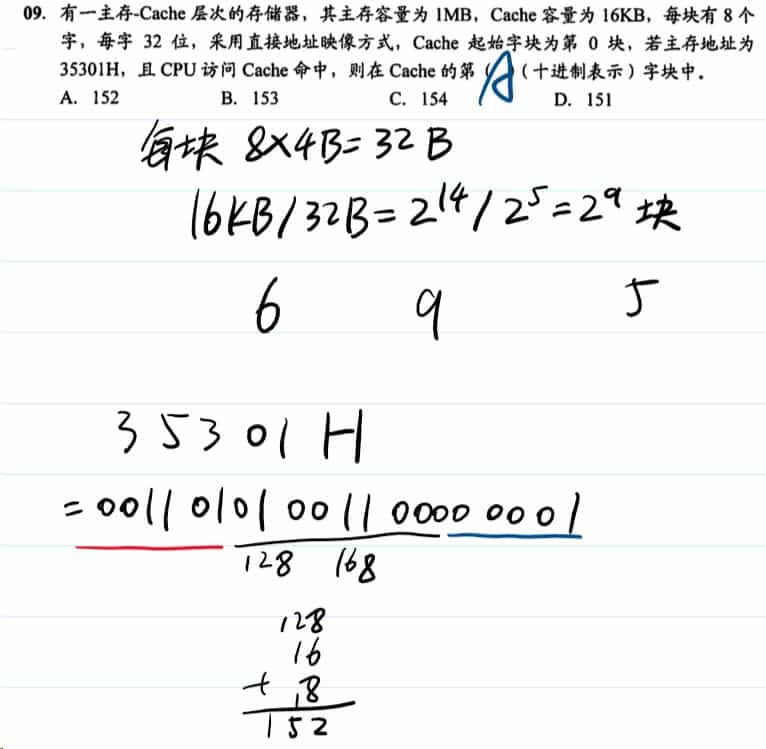 09. 有一主存-Cache 层次的存储器，其主存容量为 1MB，Cache 容量为 16KB，每块有 8 个
字，每字 32 位，采用直接地址映像方式，Cache 起始字块为第 0 块，若主存地址为
35301H，且 CPU 访问 Cache 命中，则在 Cache 的第（A）（十进制表示）字块中。
A. 152 B. 153 C. 154 D. 151
每块 8×4B=32B
16KB/32B=2^14/2^5=2^9 块
6 9 5
35301H
=0011 0101 0011 0000 0001
128 16 8
128
16
+ 8
152